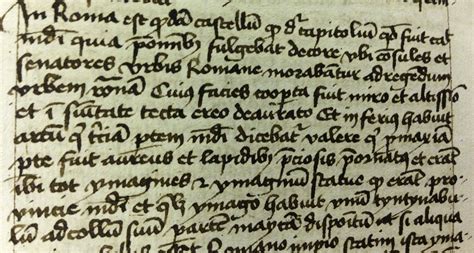 In Roma est qdā castellū qd dr capitoliū qd fuit cal
mūdi quia p omnibz fulgebat decore vbi consules et
senatores vrbis Romane morabātur ad regendum
vrbem romā Cuius facies cooperta fuit miro et altissīo
et ī sūitate tecta ereo deaurato Et inferius habuit
artū q tciam ptem mūdi dicebatur valere q p maria
pte fuit aureus et lapidibz pciosis pornatꝰ et erāt
ibi tot ymagines & ymaginū statue q erāt pro
vincie mūdi et qlz ymago habuit vnū tyntynabu
lū ad collū suū partem dispoitū si aliqua
Romano impio statim ista yma